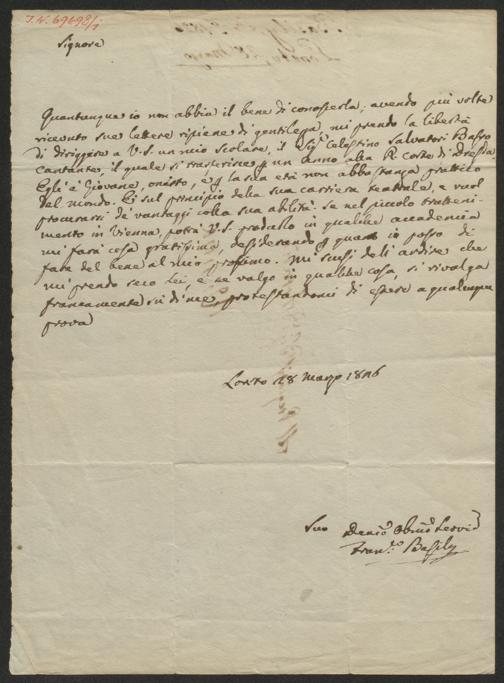 I.N. 69698/1
Signore
Quantunque io non abbia il bene di conoscerla, avendo più volte
ricevuto sue lettere ripiene di gentilezza, mi prendo la libertà
di diriggere a V.S. un mio Scolare, il Sig. Celestino Salvatori Basso
Cantante, il quale si trasferisce p un anno alla R. Corte di Dresda.
Egli è Giovane, onesto, e p la sua età non abbastanza prattico
del mondo. È sul principio della sua carriera teatrale, e vuol
procurarsi de' vantaggi colla sua abilità. Se nel piccolo tratteni-
mento in Vienna, potrà V.S. produrlo in qualche accademia
mi farà cosa gratissima, desiderando p quanto io posso di
fare del bene al mio prossimo. Mi scusi dell'ardire che
mi prendo seco Lei, e se valgo in qualche cosa, si rivalga
francamente su di me, protestandomi di essere a qualunque
prova
Loreto 28 Marzo 1826
Suo Devmo Obmo Servid
Franco Basily